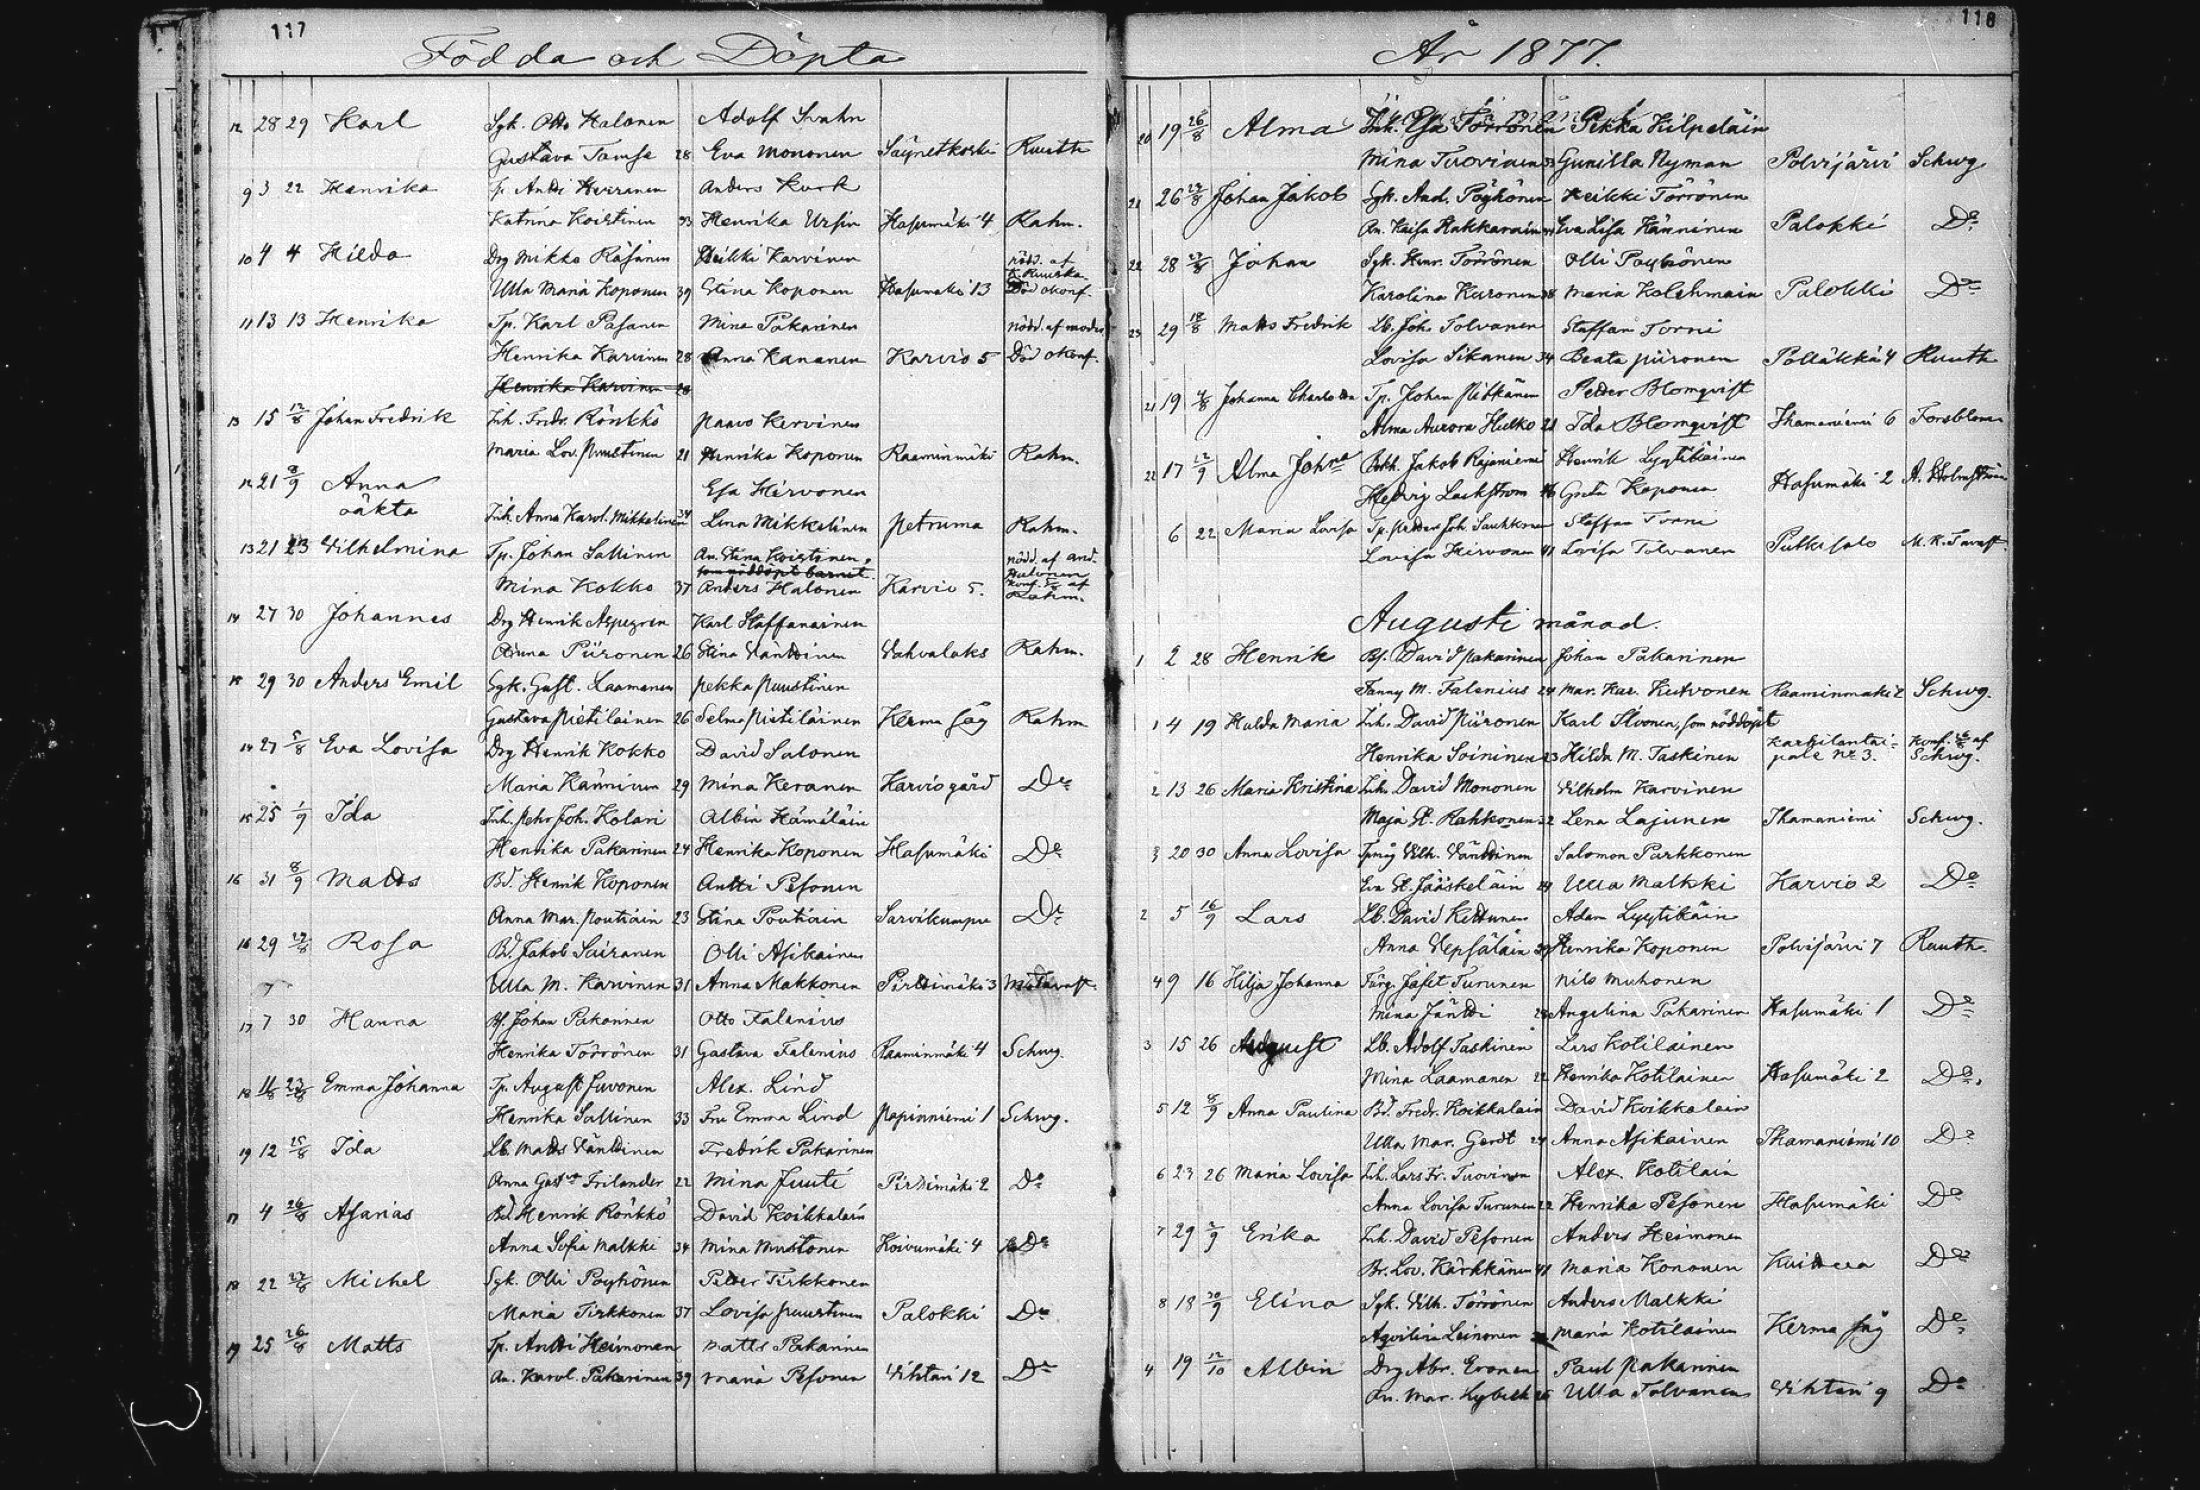 117
Födda och Döpta
12 28 29 Karl Sgk. Otto Halonen Adolf Svahn
Gustava Tamse 28 Eva Mononen Säynetkoski Ruuth
9 3 22 Henrika Tp. Anders Kurk
Katrina Koistinen 33 Henrika Ursin Hasumäki 4 Rahm.
10 4 4 Hilda Drg Mikko Räsänen Heikki Karvinen nödd. af
Ulla Maria Koponen 39 Stina Koponen Hasumäki 13 Död okonf.
11 13 13 Henrika Tp. Karl Pasanen Mina Pakarinen nödd. af modr
Henrika Karvinen 28 Anna Kananen Karvio 5 Död okonf.
Henrika Karvinen 28
13 15 12/8 Johan Fredrik Inh. Fredr. Rönkkö Paavo Kervinen
Maria Lov. Puustinen 21 Henrika Koponen Raaminmäki Rahm.
12 21 8/9 Anna Esa Hirvonen
oäkta Inh. Anna Karol. Mikkelinen 34 Lena Mikkelinen Petruma Rahm.
13 21 23 Vilhelmina Tp. Johan Sallinen An. Stina Koistinen, nödd. af And.
som nöddöpt barnet. Halonen
Mina Kokko 37 Anders Halonen Karvio 5. konf. af
Rahm.
14 27 30 Johannes Drg Henrik Aspegren Karl Staffanainen
Anna Piironen 26 Stina Väntinen Vahvalaks Rahm.
15 29 30 Anders Emil Sgk. Gust. Laamanen Pekka Puustinen
Gustava Pietiläinen 26 Selma Pietiläinen Kerma såg Rahm
14 27 5/8 Eva Lovisa Drg Henrik Kokko David Salonen
Maria Känninen 29 Mina Keranen Karvio gård Do
15 25 1/9 Ida Inh. Pehr Joh. Kolari Albin Hämäläin
Henrika Pakarinen 24 Henrika Koponen Hasumäki Do
16 31 8/9 Matts Bd. Henrik Koponen Antti Pesonen
Anna Mar. Poutiain 23 Stina Poutiain Sarvikumpu Do
16 29 Rosa Bd. Jakob Sairanen Olli Asikainen
Ulla M. Karvinen 31 Anna Makkonen Pirttimäki 3
17 7 30 Hanna Bf. Johan Pakarinen Otto Falenius
Henrika Törrönen 31 Gustava Falenius Raaminmäki 4 Schvg.
18 11/8 Emma Johanna Tp. August Juvonen Alex. Lind
Henrika Sallinen 33 Fru Emma Lind Papinniemi 1 Schvg.
19 12 25/8 Ida Lb. Matts Väntinen Fredrik Pakarinen
Anna Gustva Frilander 22 Mina Juuti Pirttimäki 2 Do
17 4 26/8 Asarias Bd. Henrik Rönkkö David Koikkalain
Anna Sofia Malkki 34 Mina Mustonen Koivumäki 4 Do
18 22 Michel Sgk. Olli Pöyhönen Petter Tirkkonen
Maria Tirkkonen 37 Lovisa Puustinen Palokki Do
19 25 26/8 Matts Tp. Antti Heimonen Matts Pakarinen
An. Karol. Pakarinen 39 Maria Pesonen Vihtari 12 Do
118
År 1877.
20 19 26/8 Alma Inh. Esa Törrönen Pekka Kilpeläin
Mina Tuovinen Gunilla Nyman Polvijärvi Schvg
21 26 Johan Jakob Sgk. And. Pöyhönen Heikki Törrönen
An. Kaisa Hakkarain Eva Lisa Känninen Palokki Do
22 28 Johan Sgk. Henr. Törrönen Olli Pöyhönen
Karolina Kuronen 38 Maria Kolehmain Palokki Do
23 29 Matts Fredrik Lb. Joh. Tolvanen Staffan Torni
Lovisa Sikanen 34 Beata Piironen Polläkkä 4 Ruuth
21 19 Johanna Charlotta Tp. Johan Pitkänen Petter Blomqvist
Alma Aurora Hutko 21 Ida Blomqvist Ihamaniemi 6 Forsblom
22 17 12/9 Alma Johna Bokh. Jakob Rajaniemi Henrik Lyytikäinen
Hedvig Lackström Greta Koponen Hasumäki 2 A. Holmström
6 22 Maria Lovisa Tp. Petter Joh. Sauhkonen Staffan Torni
Lovisa Hirvonen 41 Lovisa Tolvanen Putkisalo M. K. Tavast.
Augusti månad.
1 2 28 Henrik Bf. David Pakarinen Johan Pakarinen
Fanny M. Falenius 24 Mar. Kar. Kutvonen Raaminmäki 2 Schvg.
1 4 19 Hulda Maria Inh. David Piironen Karl Silvonen, som nöddöpt
Henrika Soininen 23 Hilda M. Taskinen pale No 3. konf. af Schvg.
2 13 26 Maria Kristina Inh. David Mononen Vilhelm Karvinen
Maja St. Rahkonen 22 Lena Lajunen Ihamaniemi Schvg.
3 20 30 Anna Lovisa Vilh. Väntinen Salomon Parkkonen
Eva St. Jääskeläin Ulla Malkki Karvio 2 Do
2 5 16/9 Lars Lb. David Kettunen Adam Lyytikäin
Anna Vepsäläin Henrika Koponen Polvijärvi 7 Ruuth.
4 9 16 Hilja Johanna Färg. Jafet Turunen Nils Muhonen
Mina Jäntti Angelina Pakarinen Hasumäki 1 Do
3 15 26 August Lb. Adolf Taskinen Lars Kotilainen
Mina Laamanen 22 Henrika Kotilainen Hasumäki 2 Do
5 12 8/9 Anna Paulina Bd. Fredr. Koikkalain David Koikkalain
Ulla Mar. Gerdt Anna Asikainen Ihamaniemi 10 Do
6 23 26 Maria Lovisa Inh. Lars Fr. Tuovinen Alex. Kotilain
Anna Lovisa Turunen 22 Henrika Pesonen Hasumäki Do
7 29 2/9 Erika Inh. David Pesonen Anders Heimonen
Br. Lov. Kärkkänen 41 Maria Kononen Do
8 18 30/9 Elina Sgk. Vilh. Törrönen Anders Malkki
Aqvilina Leinonen Maria Kotilainen Kerma såg Do
4 19 12/10 Albin Drg Abr. Eronen Paul Pakarinen
An. Mar. 26 Ulla Tolvanen Vihtari 9 Do